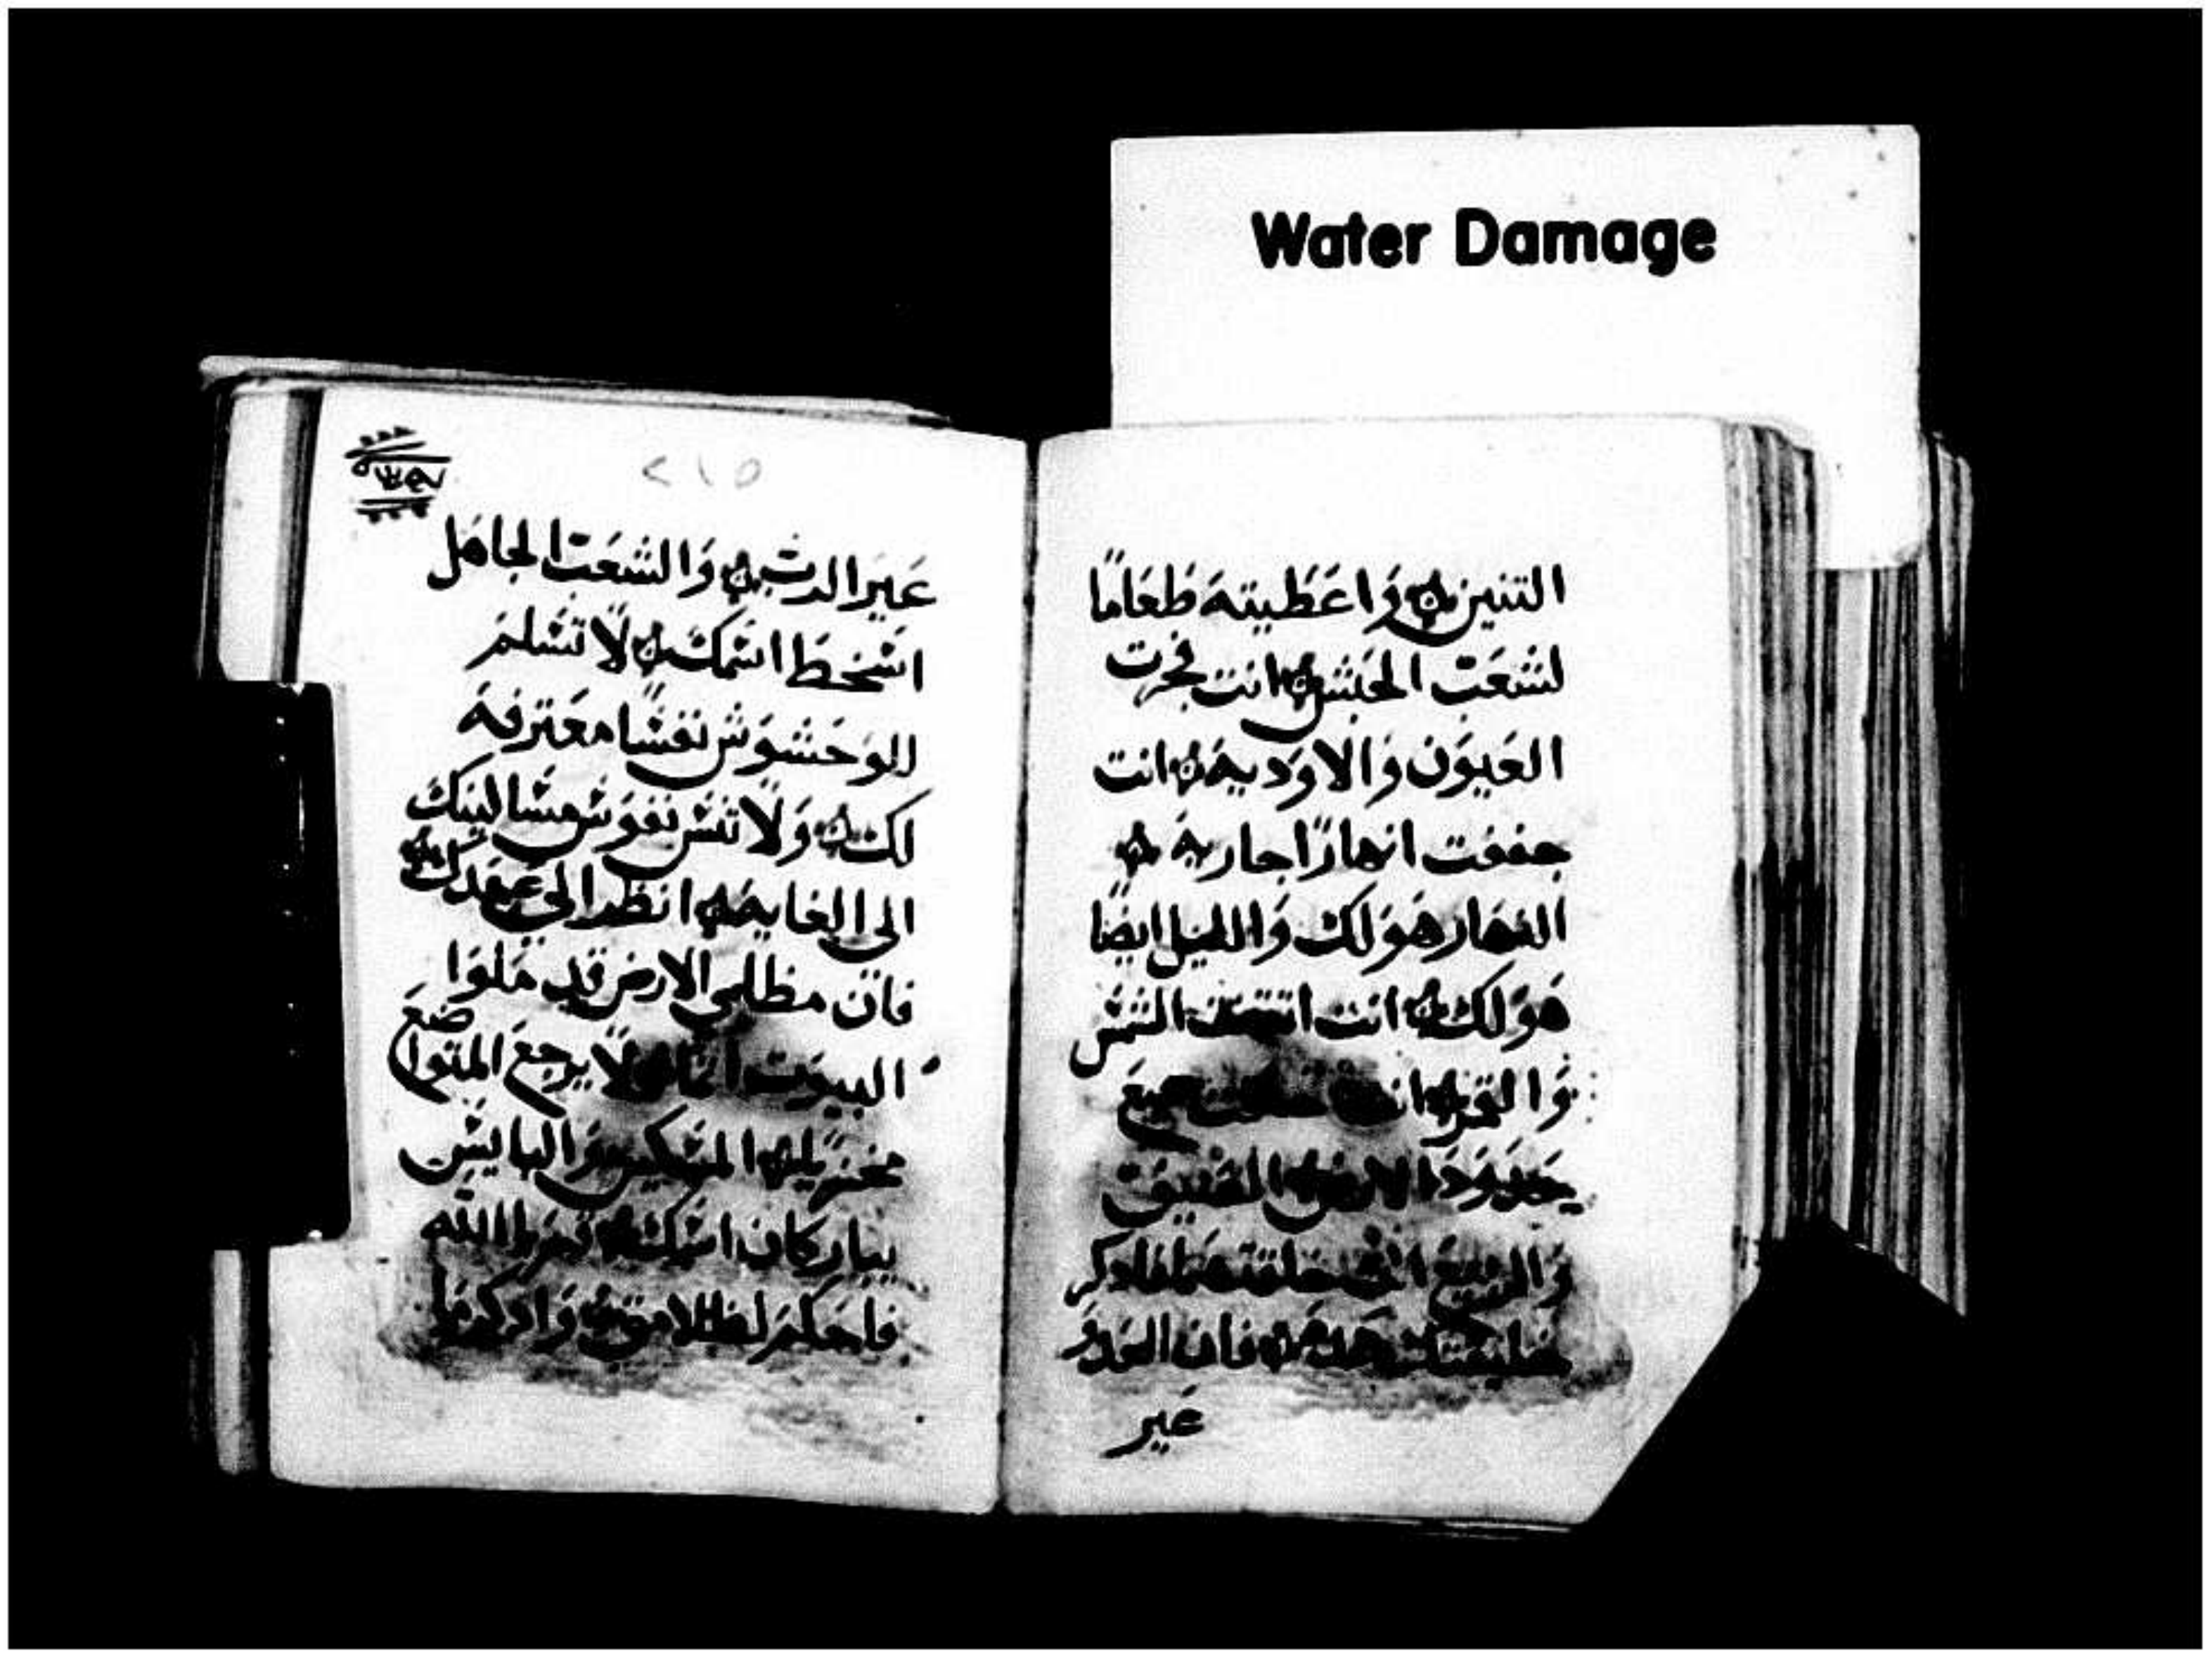 Water Damage
التنين وَاعَطيته طعَامًا
لشعَب الحَبش انت فجرت
العَيوَن وَالاوَديه انت
جففت انهارًا جاريه
النهار هوَ لك وَالليل ايضًا
هوَ لك انت اتقنت الشمس
وَالقمر جميع
حدوَد الارض الصَيف
وَالربيع انت خلقتهما فادكر
خليقتك هده فان العَدوَ
عَير
٢١٥
عَيَر الرب وَالشعَب الجاهل
اسخط اسمك لَا تسَلم
للوَحشوَش نفسًا معَترفه
لك وَلَا تنس نفوَس مسَاكينك
الى الغايه انظر الى عَهدك
فان مظلمى الارض قد مَلوَا
البيوت لَا يرجعَ المتواضعَ
مخزيا المسَكين وَالبايس
يباركان اسَمك قم يا الله
فاحكم لظلامتى وَادكر